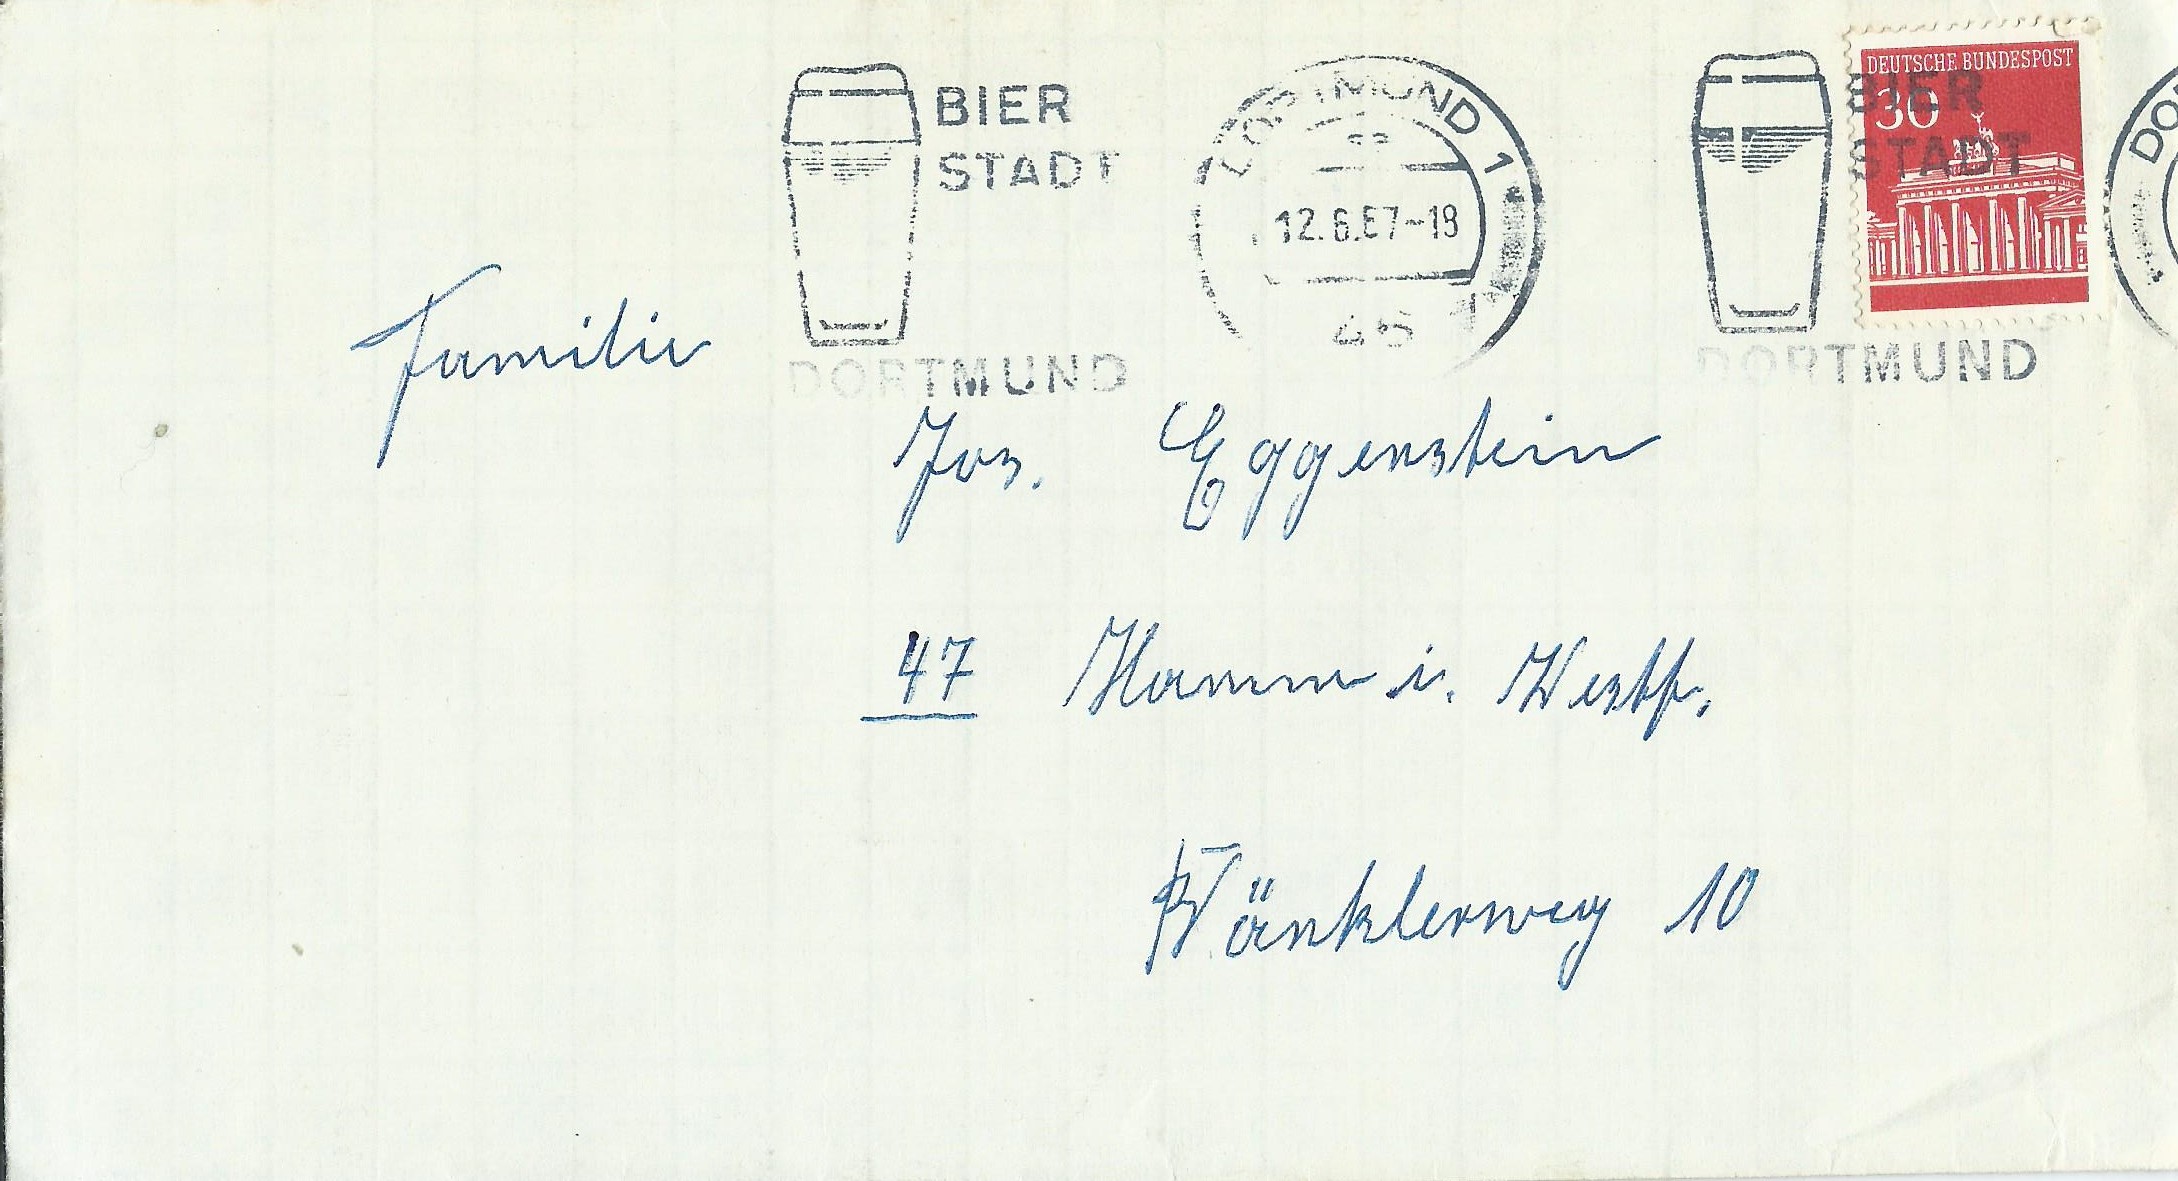 BIER
STADT
DORTMUND
DORTMUND 1
12.6.67-18
46
BIER
STADT
DORTMUND
DEUTSCHE BUNDESPOST
30
Familie
Jos. Eggenstein
47 Hamm i. Westf.
10